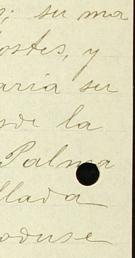 ; su ma
ostes, y
aria su
sde la
Palma
llada
oduse